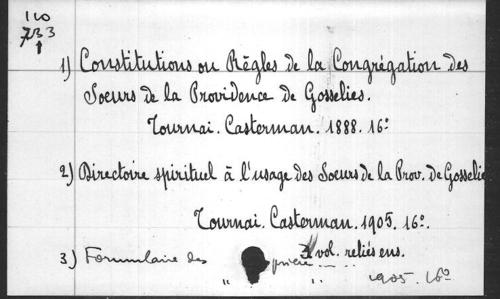 110
733
1) Constitutions ou Règles de la Congrégation des
Soeurs de la Providence de Gosselies.
Tournai. Casterman. 1888. 16º
2) Directoire spirituel à l'usage des Soeurs de la Prov. de Gosselie
Tournai. Casterman. 1905. 16º.
3 vol. reliés ens.
3) Formulaire des prière
" " 1905. 16º